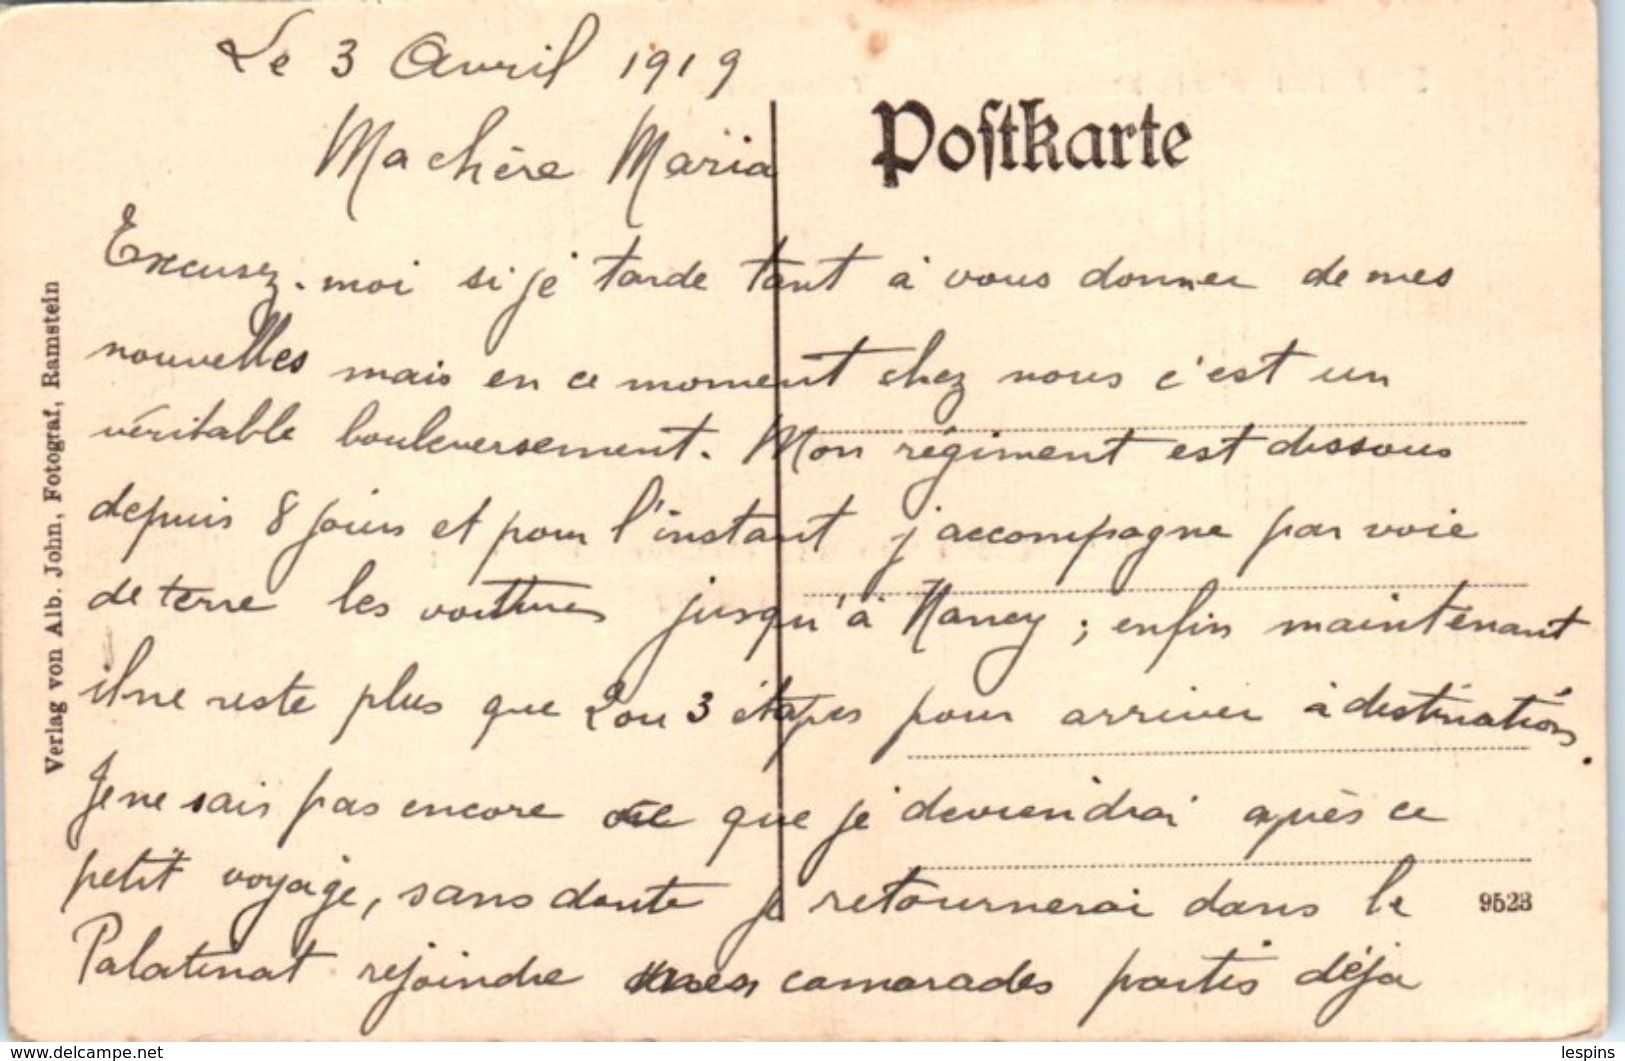 Le 3 Avril 1919
Ma chère Maria
Postkarte
Excusez-moi si je tarde tant à vous donner de mes
nouvelles mais en ce moment chez nous c'est un
véritable bouleversement. Mon régiment est dissous
depuis 8 jours et pour l'instant j'accompagne par voie
de terre les voitures jusqu'à Nancy ; enfin maintenant
il ne reste plus que 2 ou 3 étapes pour arriver à destination.
Je ne sais pas encore ce que je deviendrai après ce
petit voyage, sans doute je retournerai dans le
Palatinat rejoindre mes camarades partis déjà
9523
Verlag von Alb. John, Fotograf, Ramstein
www.delcampe.net
lespins